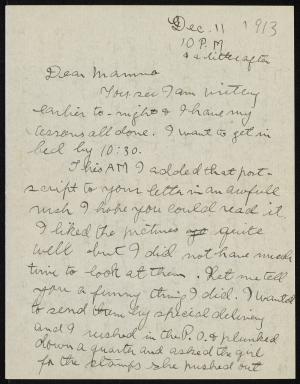 Dec. 11 1913
10 P.M
& a little after
Dear Mamma
You see I am writing
earlier to-night & I have my
lessons all done. I want to get in
bed by 10:30.
This AM I added that post-
script to your letter in an awfull
rush I hope you could read it.
I liked the pictures quite
well but I did not have much
time to look at them. Let me tell
you a funny thing I did. I wanted
to send them by special delivery
and I rushed in the P.O. & plunked
down a quarter and asked the girl
for the stamps she pushed out